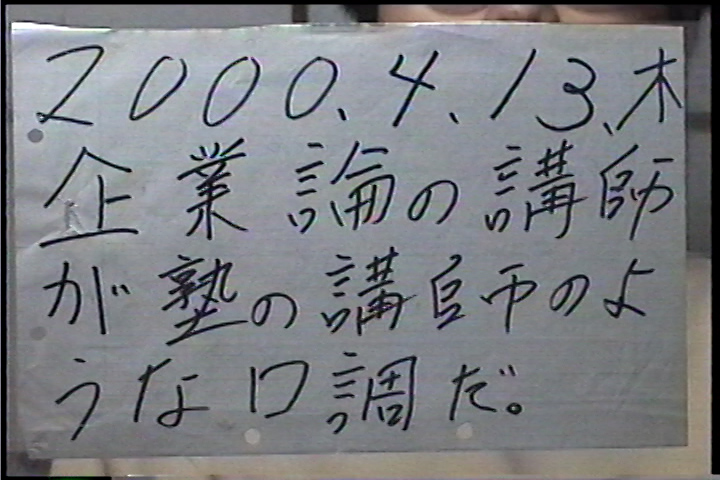 2000.4.13.木
企業論の講師
が塾の講師のよ
うな口調だ。